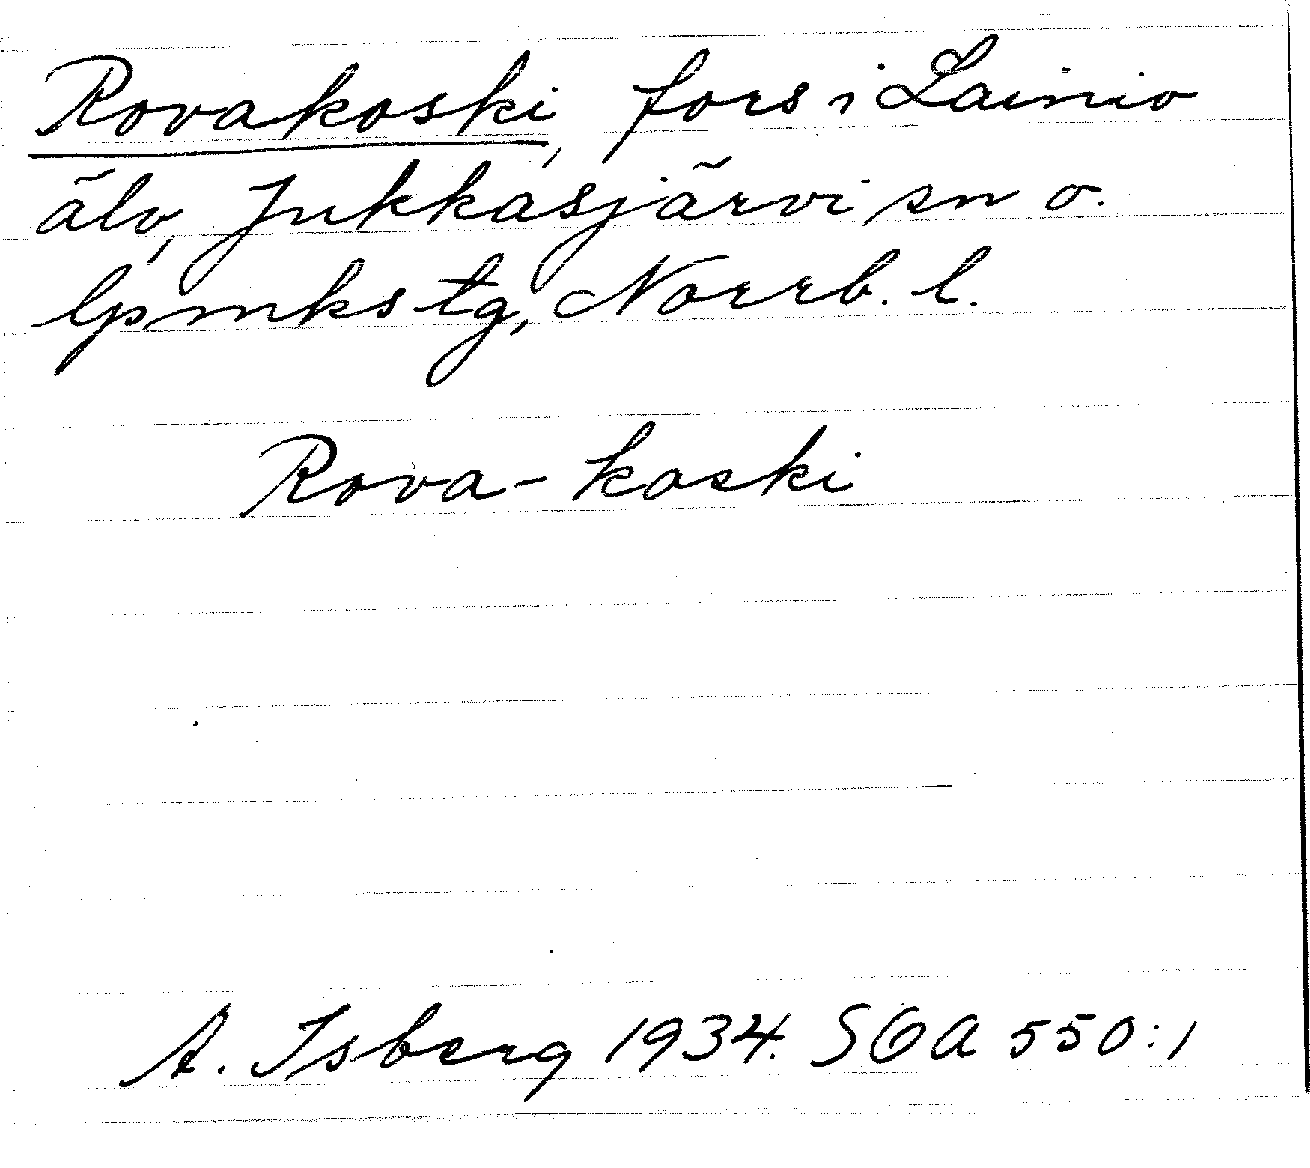 Rovakoski, fors i Lainio
älv, Jukkasjärvi sn o.
lpmkstg, Norrb. l.
Rova-koski
A. Isberg 1934. SOA 550:1